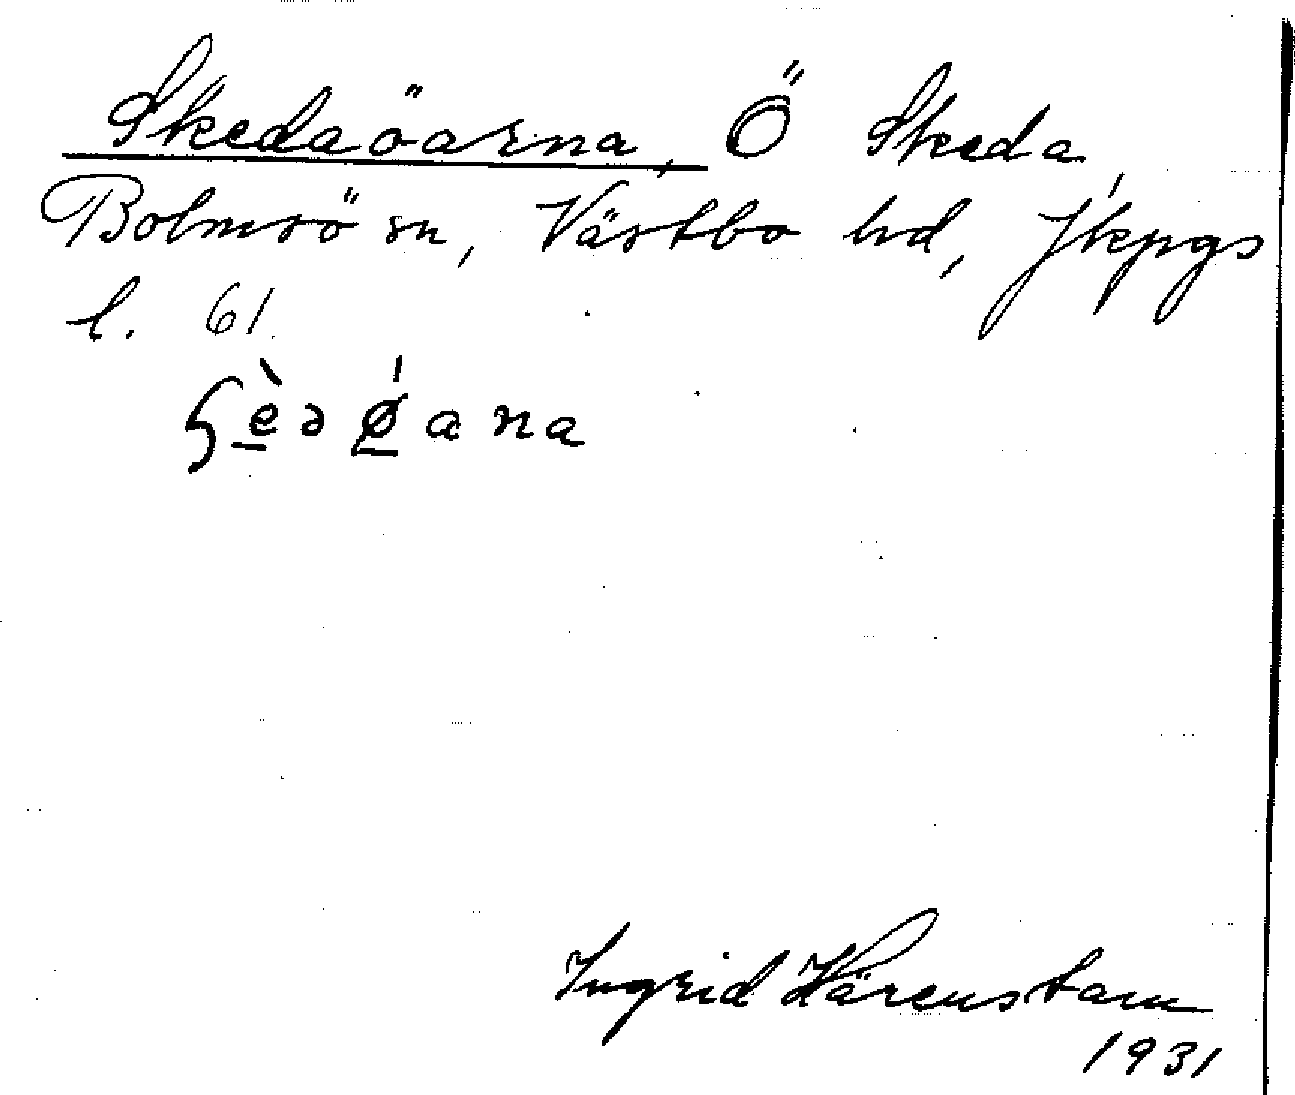 Skedaöarna, Ö Skeda,
Bolmsö sn, Västbo hd, Jkpgs
l. 61.
Ingrid Härenstam
1931